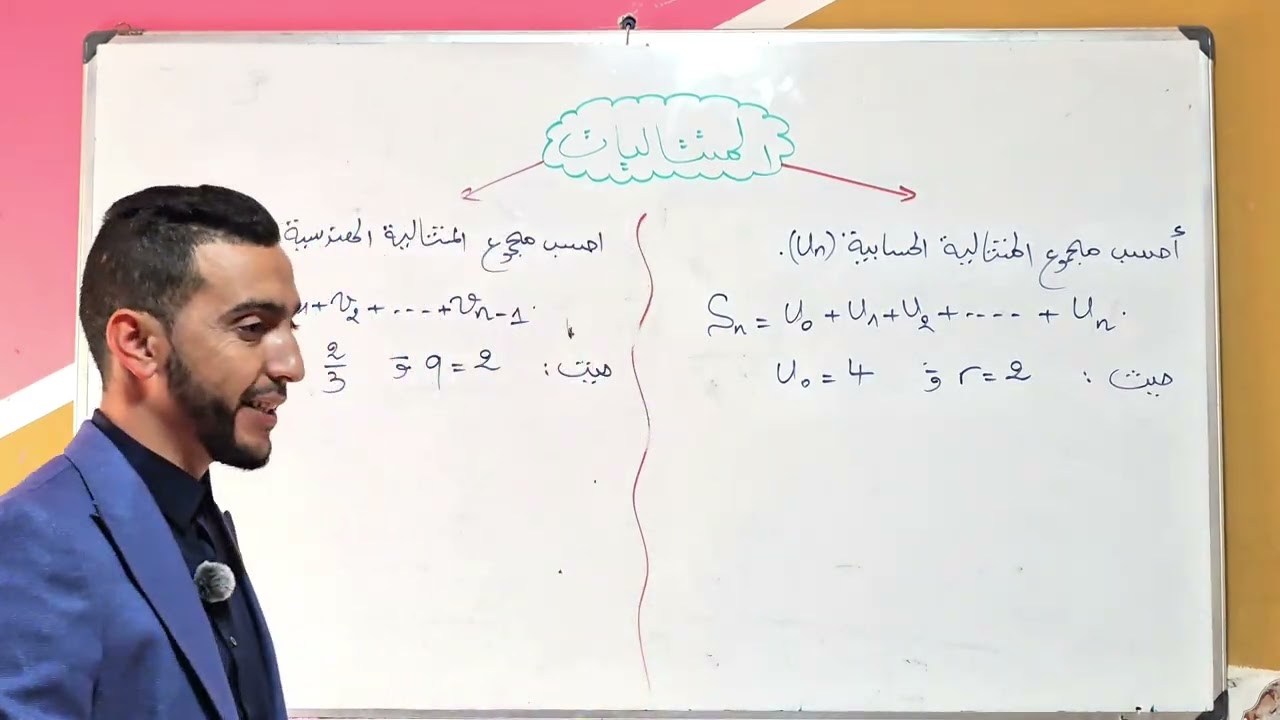 المتتاليات
أحسب مجموع المتتالية الحسابية (Un).
Sn = U0 + U1 + U2 + .... + Un.
حيث : r = 2 و U0 = 4
احسب مجموع المتتالية الهندسية
+ V2 + .... + Vn-1.
حيث : q = 2 و 2/3